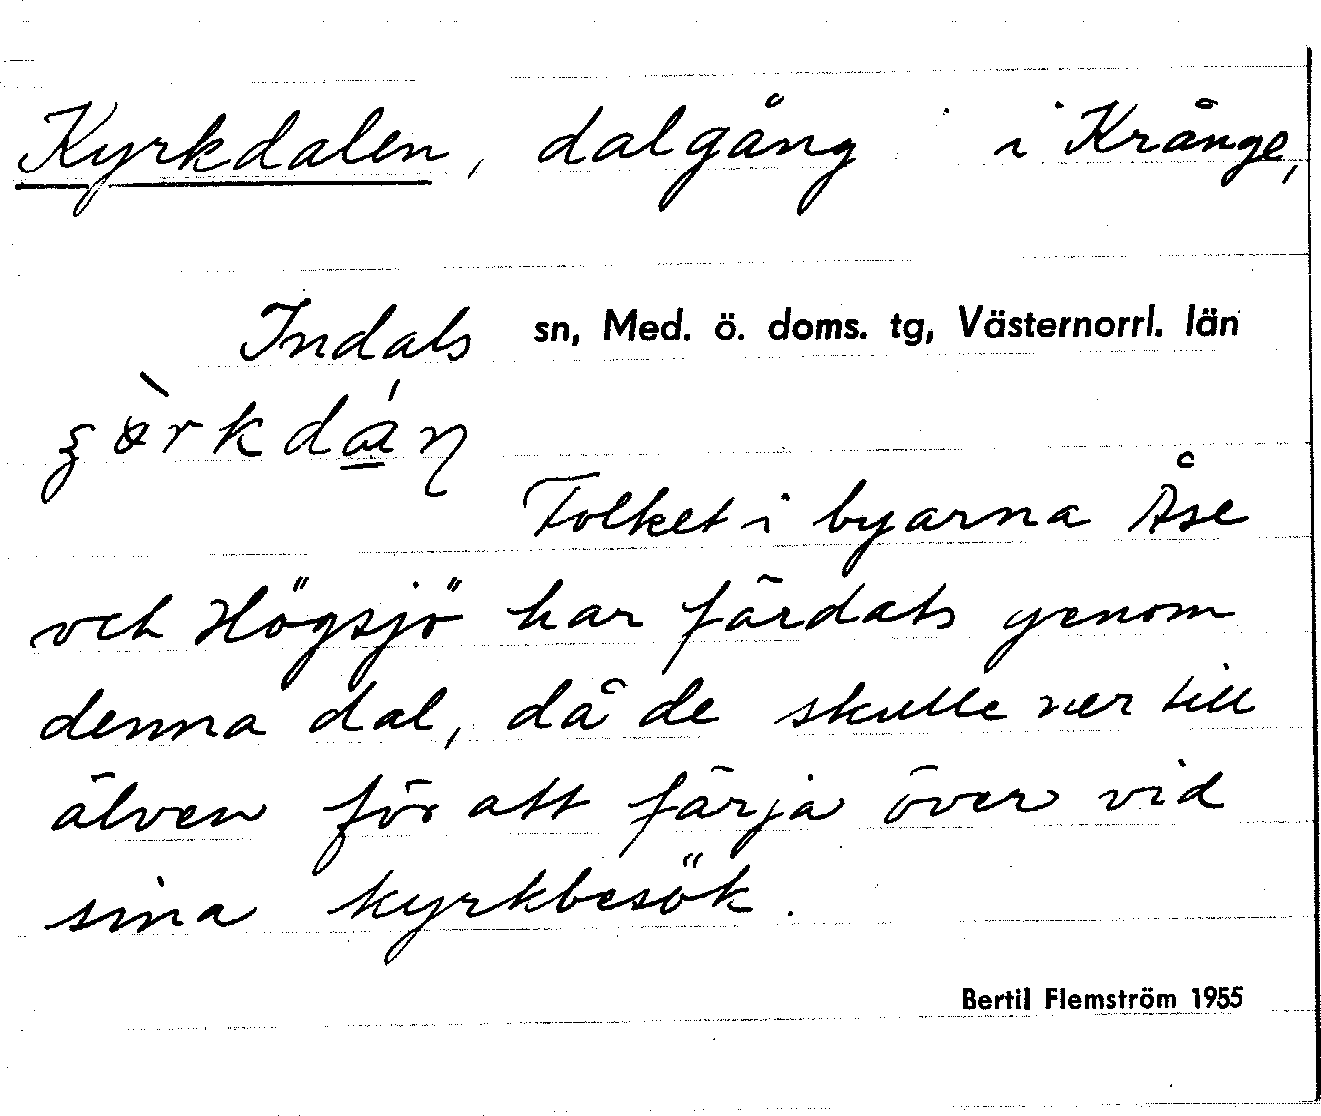 Kyrkdalen, dalgång i Krånge,
Indals sn, Med. ö. doms. tg, Västernorrl. län
Folket i byarna Åse
och Högsjö har färdats genom
denna dal, då de skulle ner till
älven för att färja över vid
sina kyrkbesök.
Bertil Flemström 1955